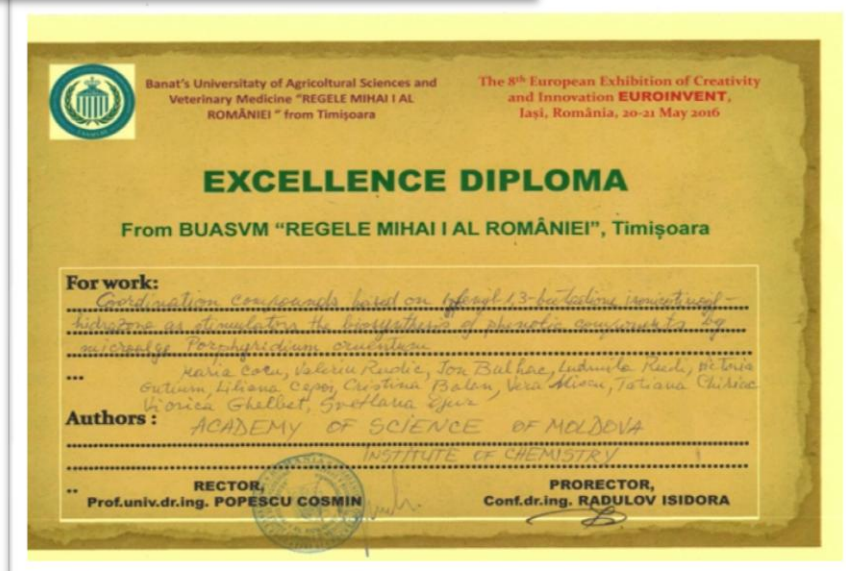 Banat's Universitaty of Agricoltural Sciences and
Veterinary Medicine "REGELE MIHAI I AL
ROMÂNIEI " from Timişoara
The 8th European Exhibition of Creativity
and Innovation EUROINVENT,
Iaşi, România, 20-21 May 2016
EXCELLENCE DIPLOMA
From BUASVM "REGELE MIHAI I AL ROMÂNIEI", Timişoara
For work:
Coordination compounds based on 1,3-
as stimulators the biosynthesis of components by
microalge Porphyridium
...
Maria Cocu, Valeriu Rudic, Ion Bulhac, Ludmila Rudi, Victoria
Liliana Cepoi, Cristina Balan, Vera Miscu, Tatiana Chiriac
Viorica Ghelbet, Svetlana
Authors :
ACADEMY OF SCIENCE OF MOLDOVA
INSTITUTE OF CHEMISTRY
..
RECTOR,
Prof.univ.dr.ing. POPESCU COSMIN
PRORECTOR,
Conf.dr.ing. RADULOV ISIDORA